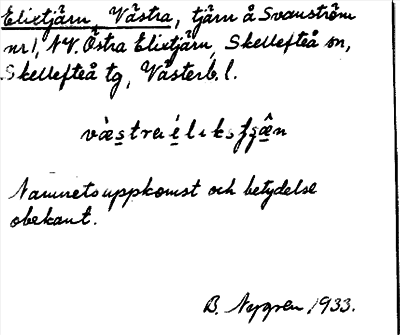 Elixtjärn, Västra, tjärn å Svanström
nr 1, NV. Östra Elixtjärn, Skellefteå sn,
Skellefteå tg, Västerb. l.
Namnets uppkomst och betydelse
obekant.
B. Nygren 1933.